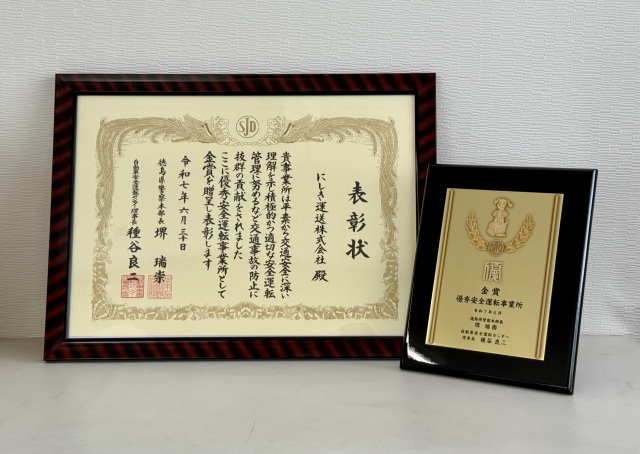 SJD
表彰状
にしき運送株式会社 殿
貴事業所は平素から交通安全に深い
理解を示し積極的かつ適切な安全運転
管理に努めるなど交通事故の防止に
抜群の貢献をされました
ここに優秀安全運転事業所として
金賞を贈呈し表彰します
令和七年六月三十日
徳島県警察本部長 堺 瑞崇
自動車安全運転センター理事長 種谷良二
金賞
優秀安全運転事業所
令和7年6月
徳島県警察本部長
堺 瑞崇
自動車安全運転センター
理事長 種谷良二